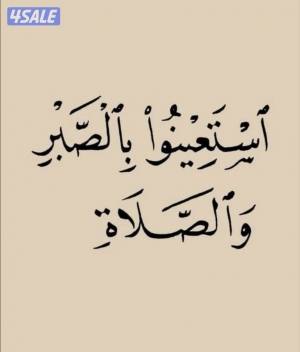 4SALE
ٱسْتَعِينُوا۟ بِٱلصَّبْرِ
وَٱلصَّلَاةِ